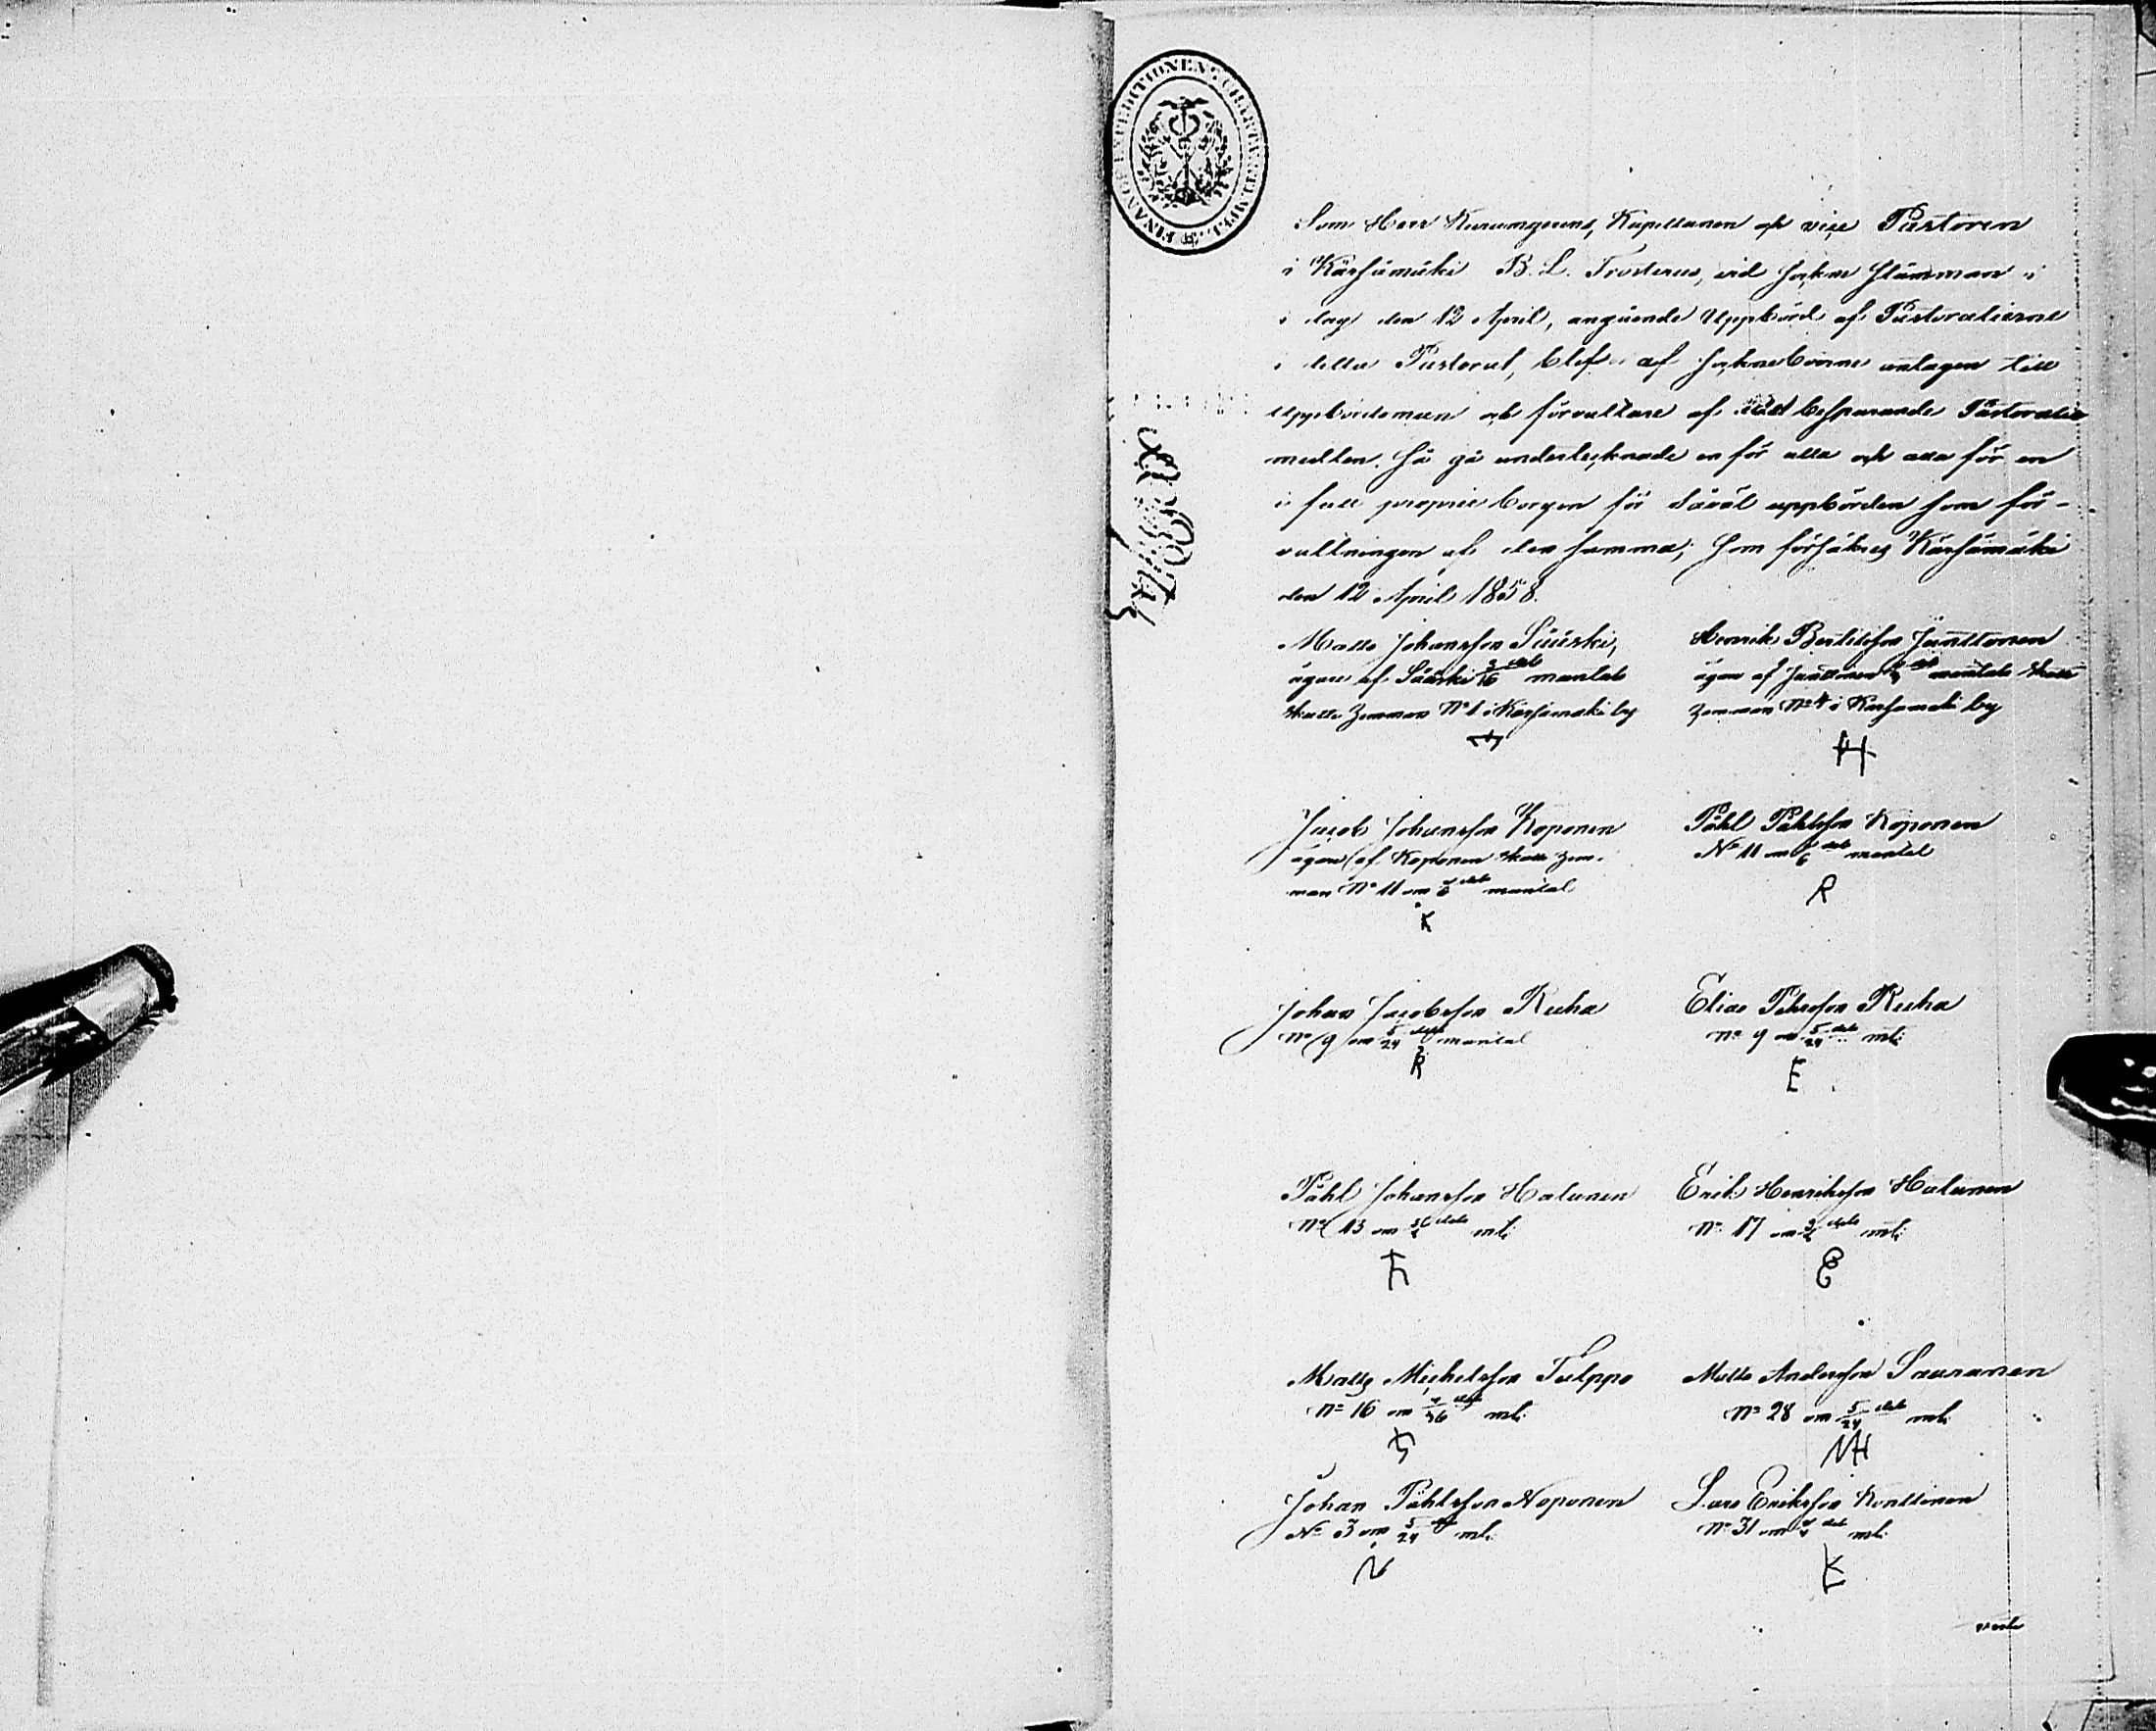 FINANCE EXPEDITIONEN CHARTÆ
Som Herr Kapellanen och vice Pastoren
i Kärsämäki B. L. Frosterus, vid Sockne Stämman i
i dag den 12 April, angående Uppbörd af Pastoralierne
i detta Pastorat, blef af Sockneboerne antagen till
uppbördsman och förvaltare af besparande Pastoralie
medlen. Så gå undertecknade en för alla och alla för en
i full proprie borgen för såväl uppbörden som för-
valtningen af den samma; som försäkras Kärsämäki
den 12 April 1858.
Matts Johansson Säärski,
ägare af Säärski 3/16 dels mantals
skatte Hemman No 1 i Kärsämäki by
Henrik Bertilsson Junttonen
ägare af Junttonen mantals skatte
Hemman No 4 i Kärsämäki by
H
Jacob Johansson Koponen
ägare af Koponen skatte Hem-
man No 11 om 1/6 dels mantal
K
Påhl Påhlsson Koponen
No 11 om 1/6 dels mantal
R
Johan Jacobsson Ruha
No 9 om 5/24 dels mantal
R
Elias Pehrsson Ruha
No 9 om 5/24 dels mtl:
E
Påhl Johansson Halunen
No 13 om dels mtl:
Erik Henriksson Halunen
No 17 om dels mtl:
E
Matts Michelsson Tulppo
No 16 om dels mtl:
Matts Andersson Sauranen
No 28 om 5/24 dels mtl:
MH
Johan Påhlsson Noponen
No 3 om 5/24 mtl:
N
Lars Eriksson Konttinen
No 31 om dels mtl:
K